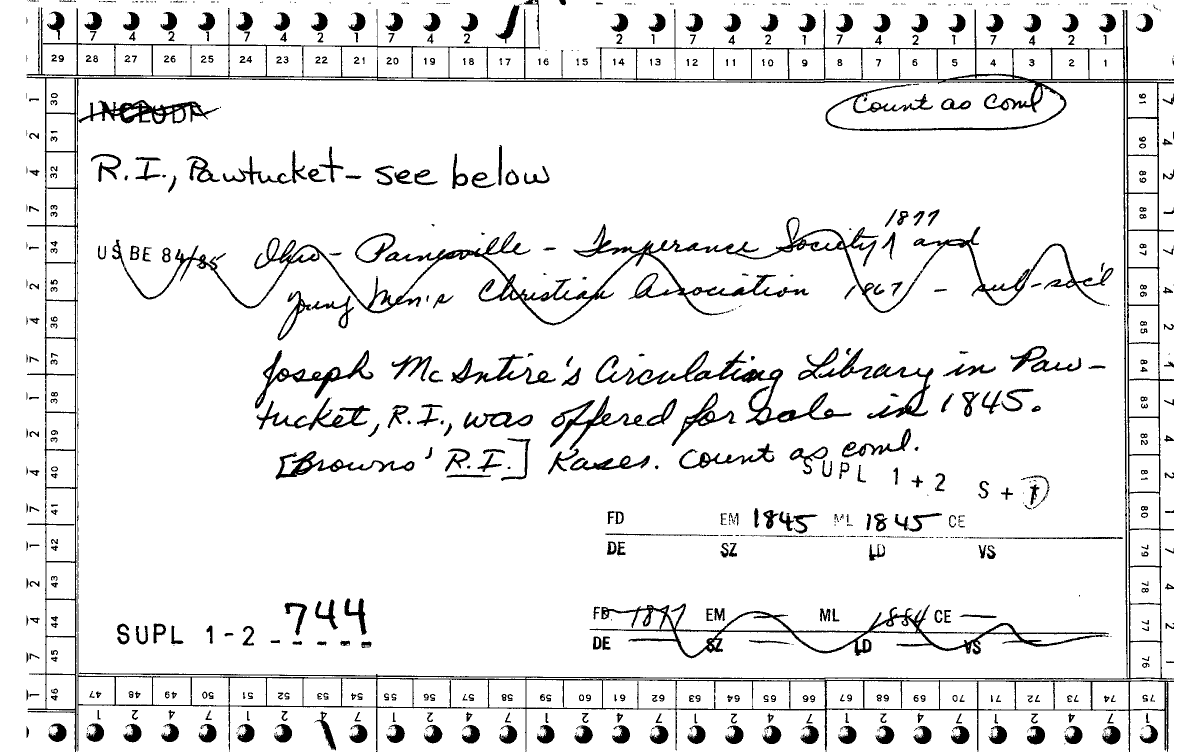 1 7 4 2 1 7 4 2 1 7 4 2 1 2 1 7 4 2 1 7 4 2 1 7 4 2 1
29 28 27 26 25 24 23 22 21 20 19 18 17 16 15 14 13 12 11 10 9 8 7 6 5 4 3 2 1
INCLUDE
Count as coml
R.I., Pawtucket - see below
1877
USBE 84/85 Ohio - Painesville - Temperance Society ^ and
Young Men's Christian Association 1867 - sub-soc'l
Joseph McIntire's Circulating Library in Paw-
tucket, R.I., was offered for sale in 1845.
[Browns' R.I.] Kases. Count as coml.
SUPL 1+2 S + f
FD EM 1845 ML 1845 CE
DE SZ LD VS
SUPL 1-2 - 744
FD 1877 EM — ML 1884 CE —
DE — SZ — LD — VS —
30 31 32 33 34 35 36 37 38 39 40 41 42 43 44 45 46
91 90 89 88 87 86 85 84 83 82 81 80 79 78 77 76 75
47 48 49 50 51 52 53 54 55 56 57 58 59 60 61 62 63 64 65 66 67 68 69 70 71 72 73 74 75